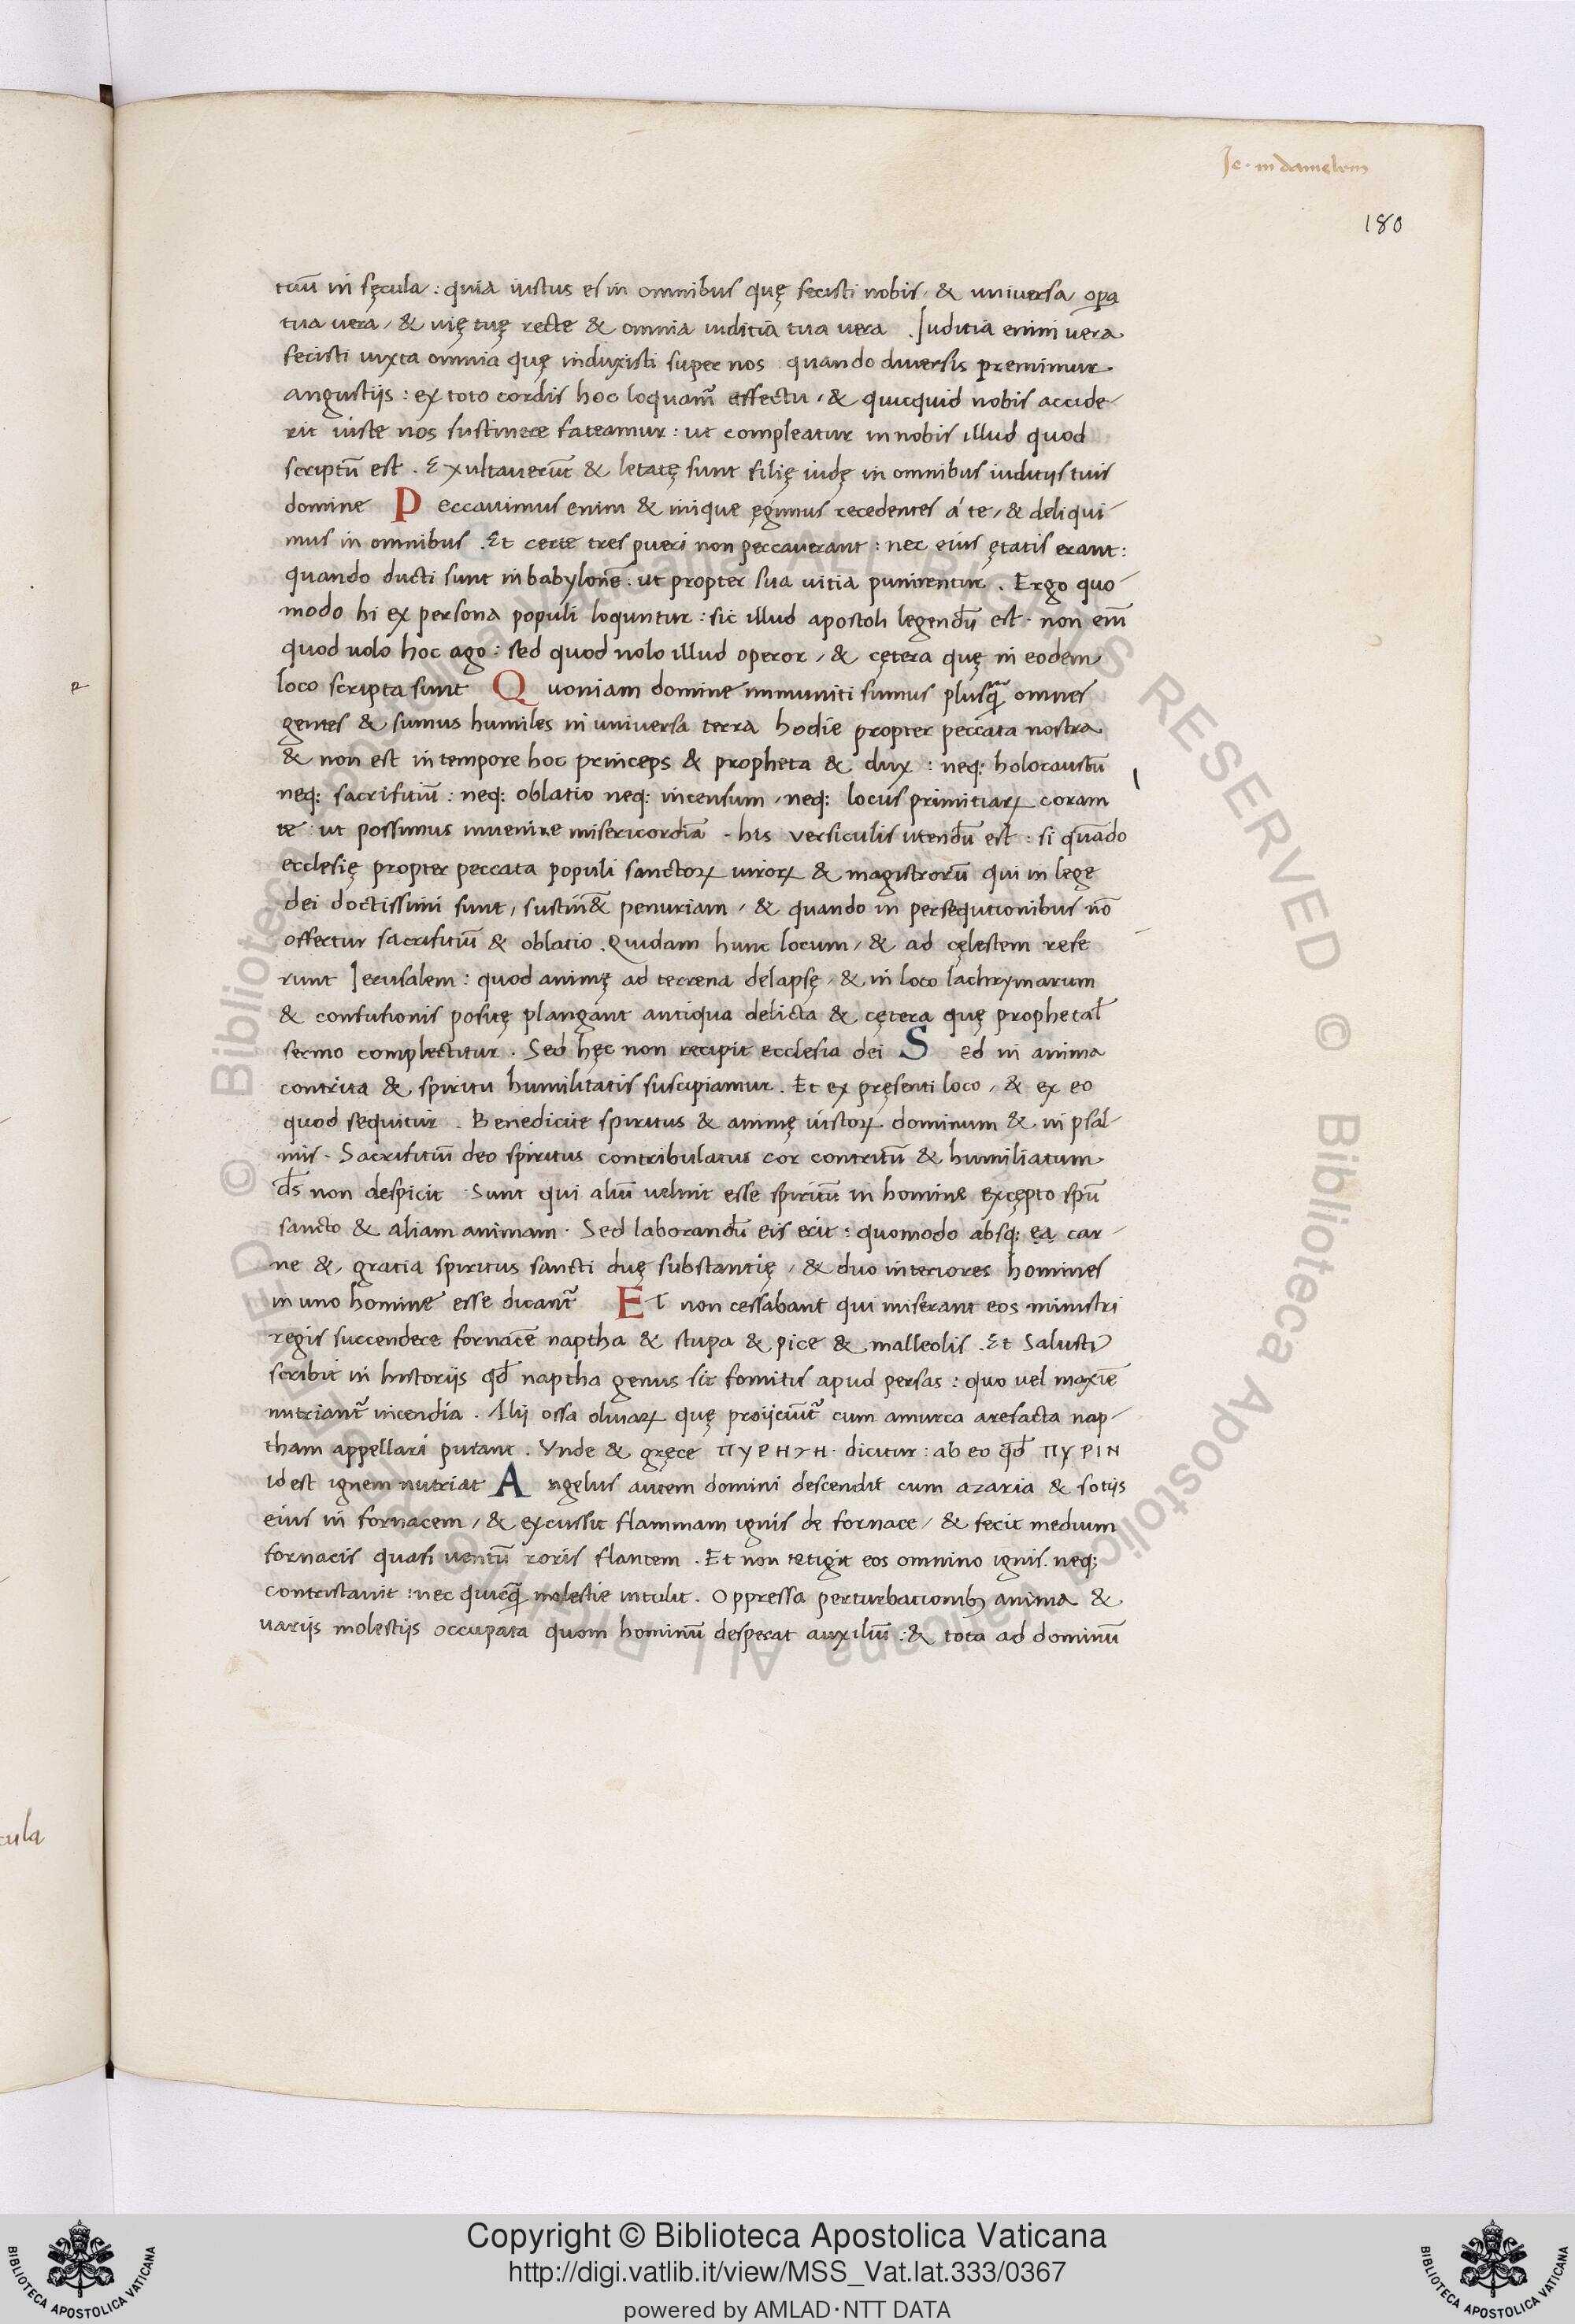 Je. in danielem
180
tuū in sęcula : quia iustus es in omnibus quę fecisti nobis, & universa oꝑa
tua vera, & vię tuę recte & omnia iuditia tua vera . Juditia enim vera
fecisti iuxta omnia quę induxisti super nos quando diversis premimur
angustijs : ex toto cordis hoc loquam̃ affectu, & quicquid nobis accide-
rit iuste nos sustinere fateamur : ut compleatur in nobis illud quod
scriptū est . Exultaverūt & letatę sunt filię iudę in omnibus iuditijs tuis
domine Peccavimus enim & inique ęgimus recedentes á te, & deliqui-
mus in omnibus . Et certe tres pueri non peccaverant : nec eius ętatis erant :
quando ducti sunt in babylonē : ut propter sua vitia punirentur . Ergo quo-
modo hi ex persona populi loquntur : sic illud apostoli legendū est . non eīm
quod volo hoc ago : sed quod nolo illud operor, & cętera quę in eodem
loco scripta sunt Quoniam domine imminuti sumus plusq̄ omnes
gentes & sumus humiles in universa terra hodie propter peccata nostra
& non est in tempore hoc princeps & propheta & dux : neq; holocaustū
neq; sacrifitiū : neq; oblatio neq; incensum, neq; locus primitiaꝝ coram
te : ut possimus invenire misericordiā . his versiculis utendū est : si quādo
ecclesię propter peccata populi sanctoꝝ viroꝝ & magistrorū qui in lege
dei doctissimi sunt, sustin& penuriam, & quando in persequtionibus nō
offertur sacrifitiū & oblatio . Quidam hunc locum, & ad cęlestem refe
runt Jerusalem : quod animę ad terrena delapsę, & in loco lachrymarum
& confusionis positę plangant antiqua delicta & cętera quę prophetal̄
sermo complectitur . Sed hęc non recipit ecclesia dei Sed in anima
contrita & spiritu humilitatis suscipiamur . Et ex pręsenti loco, & ex eo
quod sequitur . Benedicite spiritus & animę iustoꝝ dominum & in psal-
mis . Sacrifitiū deo spiritus contribulatus cor contritū & humiliatum
d̄s non despicit . Sunt qui aliū velint esse spiritū in homine excępto spū
sancto & aliam animam . Sed laborandū eis erit : quomodo absq; ea car-
ne &, gratia spiritus sancti duę substantię, & duo interiores homines
in uno homine esse dicant̃ Et non cessabant qui miserant eos ministri
regis succendere fornacē naptha & stupa & pice & malleolis . Et Salusti⁹
scribit in historijs qd̄ naptha genus sit fomitis apud persas : quo vel maxīe
nutriant̃ incendia . Alij ossa olivaꝝ quę proijciūt̃ cum amurca arefacta nap-
tham appellari putant . Unde & gręce ΠΥΡΗΥΗ dicitur : ab eo qd̄ ΠΥΡΙΝ
id est ignem nutriat Angelus autem domini descendit cum azaria & sotijs
eius in fornacem, & excussit flammam ignis de fornace, & fecit medium
fornacis quasi ventū roris flantem . Et non tetigit eos omnino ignis neq;
contristavit : nec quicq̄ molestie intulit . Oppressa perturbationib; anima &
varijs molestijs occupata quom hominū desperat auxiliū : & tota ad dominū
cula
Copyright © Biblioteca Apostolica Vaticana
http://digi.vatlib.it/view/MSS_Vat.lat.333/0367
powered by AMLAD·NTT DATA
BIBLIOTECA APOSTOLICA VATICANA
BIBLIOTECA APOSTOLICA VATICANA